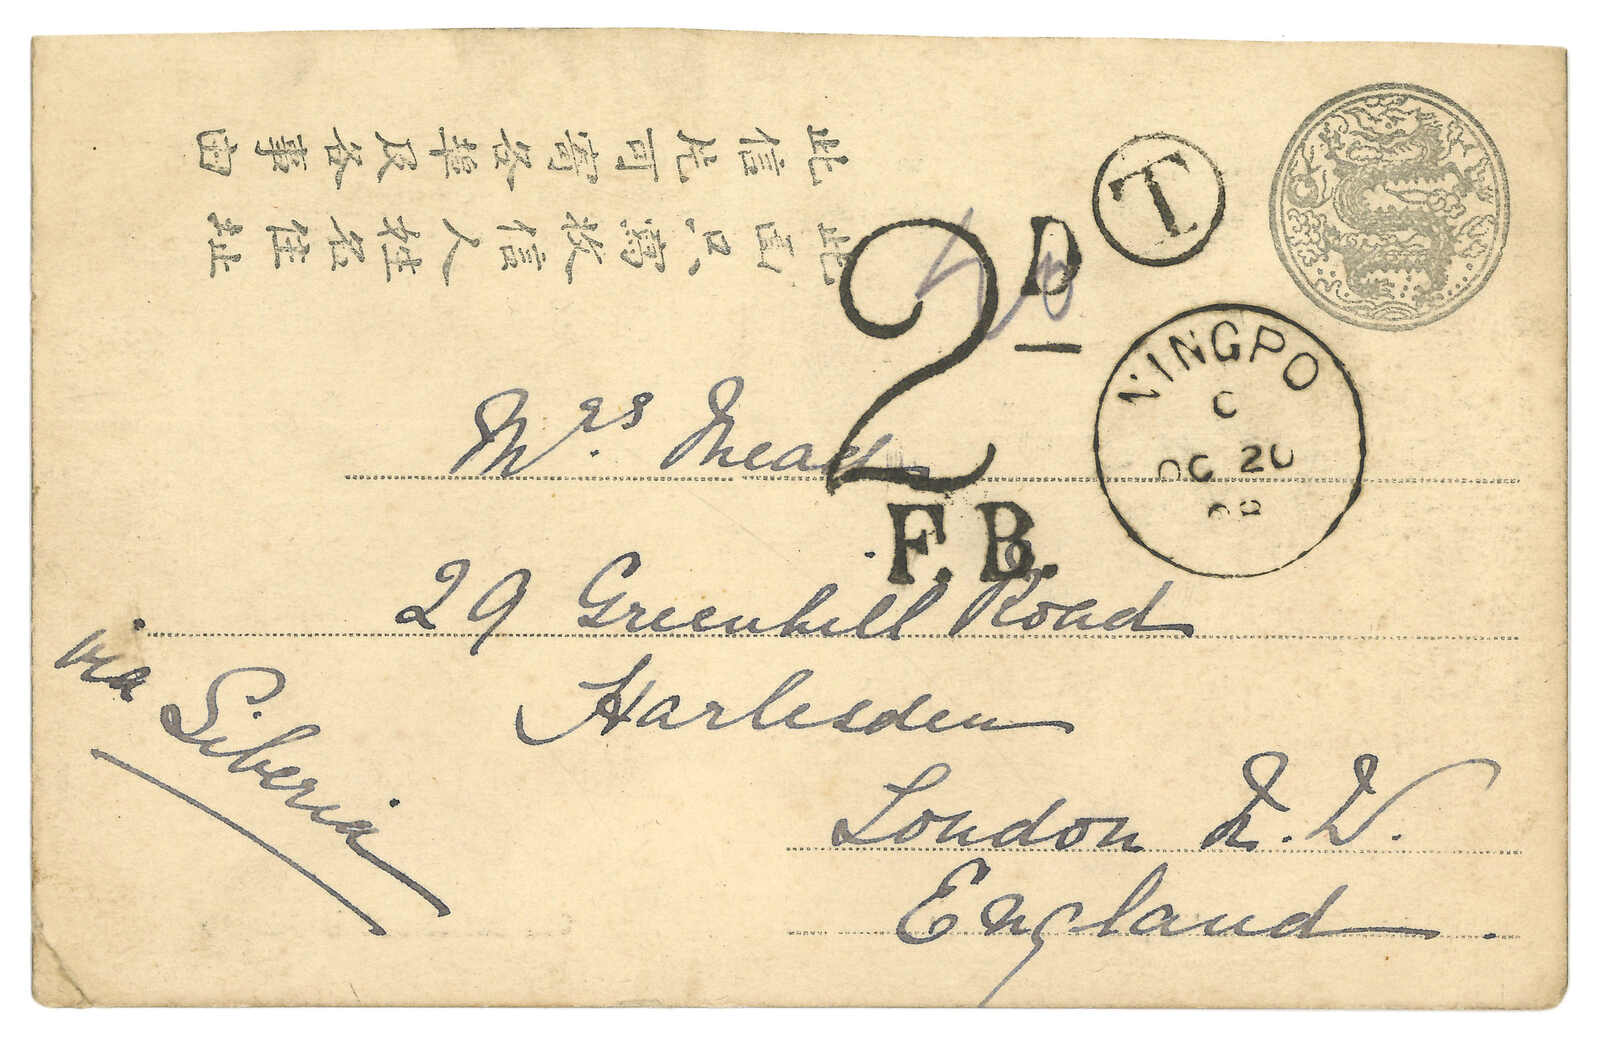 此信片可寄各埠及各事由
此面只寫收信人姓名住址
T
2D
F.B.
NINGPO
C
OC 20
Mrs.
29 Greenhill Road
Harlesden
London N.W.
England.
via Siberia